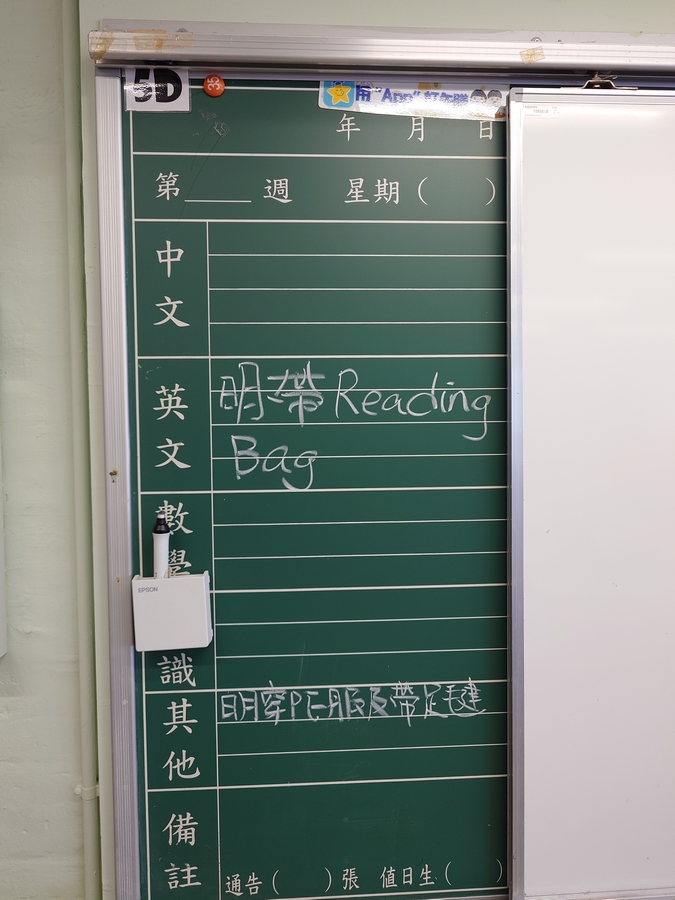 5D
35
用"App"訂午膳
年 月 日
第____週 星期( )
中文
英文
明帶 Reading
Bag
數學
EPSON
識
其他
明穿PE服及帶足毽
備註
通告( )張 值日生( )